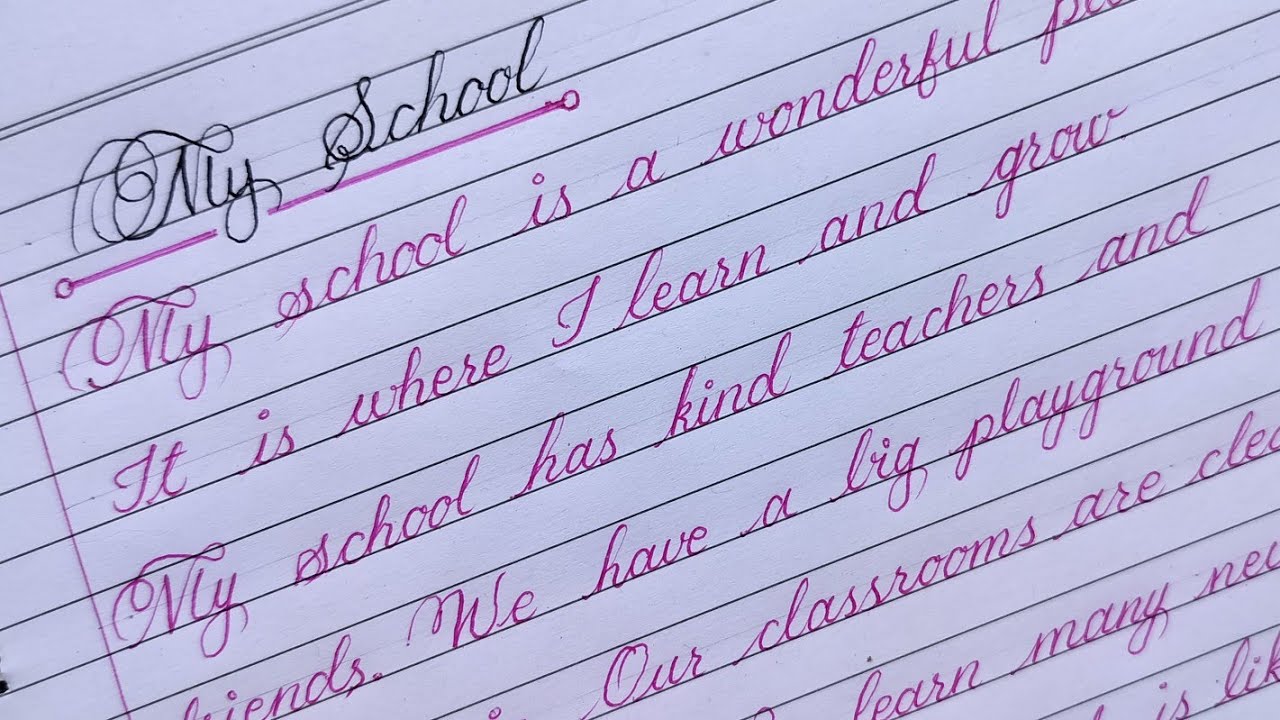 My School
My school is a wonderful
It is where I learn and grow
My school has kind teachers and
friends. We have a big playground
Our classrooms are
learn many
is